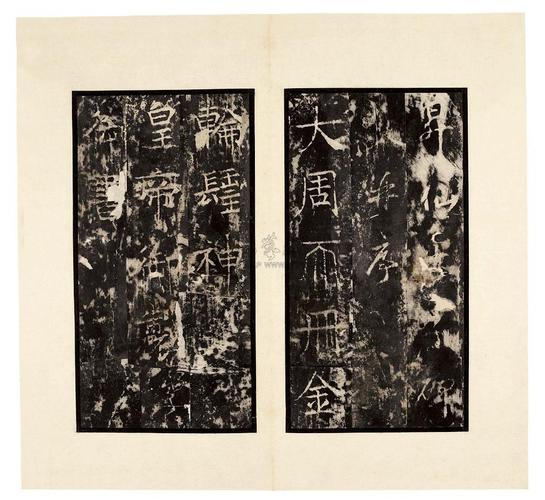 昇仙太子碑
并序
大周𠀑冊金
輪𨲢神
皇帝御製
御書